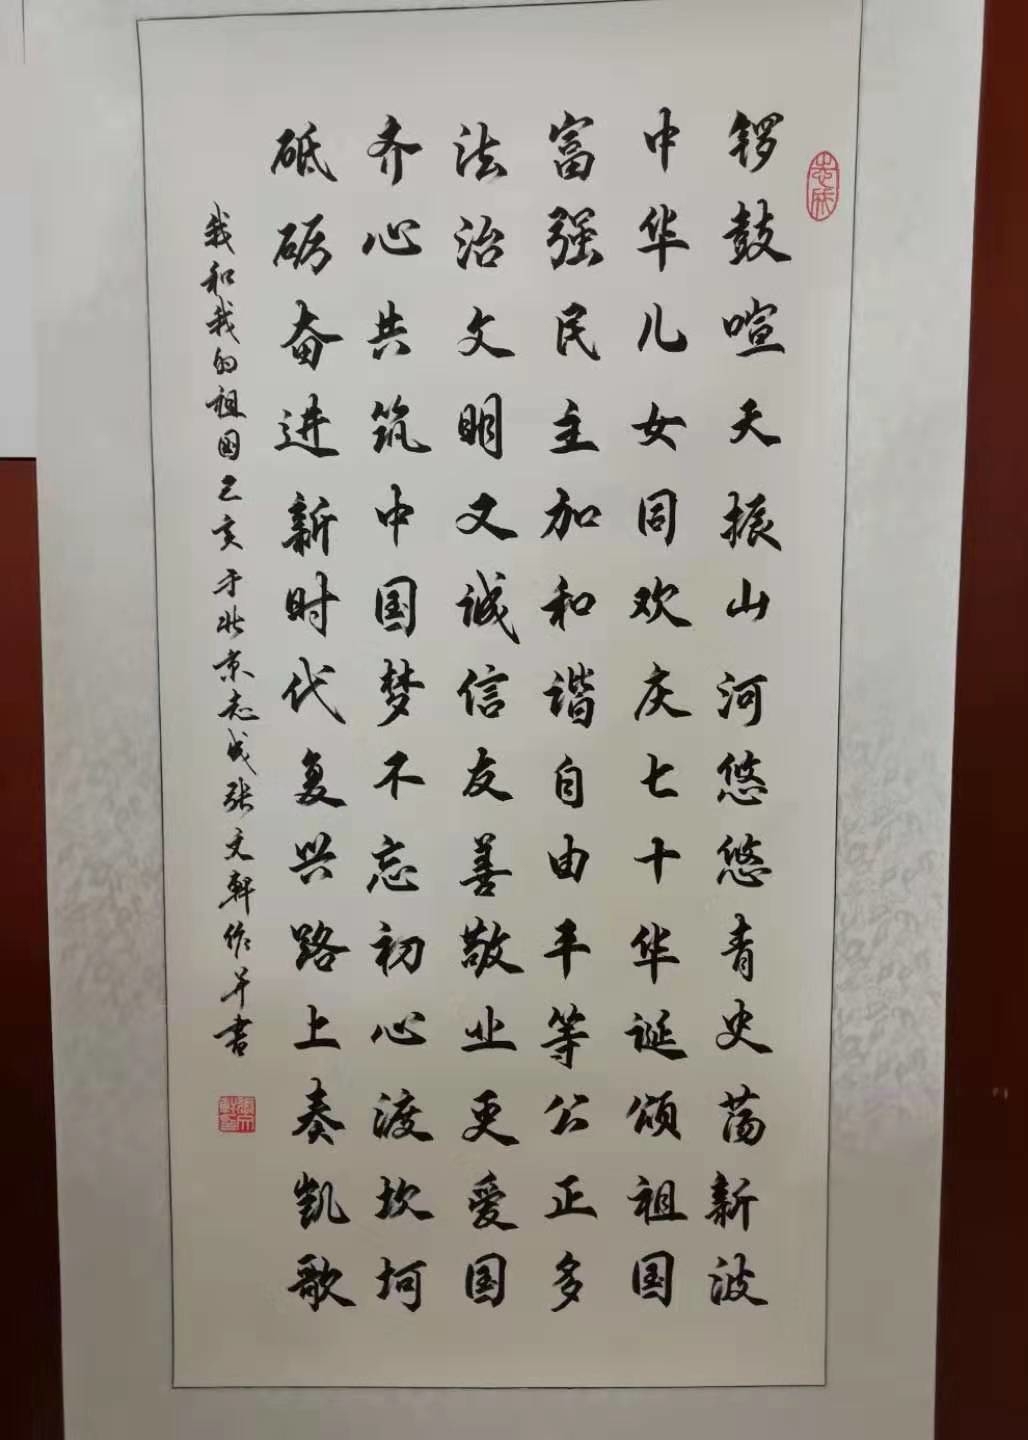 锣鼓喧天振山河悠悠青史荡新波
中华儿女同欢庆七十华诞颂祖国
富强民主加和谐自由平等公正多
法治文明又诚信友善敬业更爱国
齐心共筑中国梦不忘初心渡坎坷
砥砺奋进新时代复兴路上奏凯歌
我和我的祖国己亥于北京志成张文轩作并书
志成